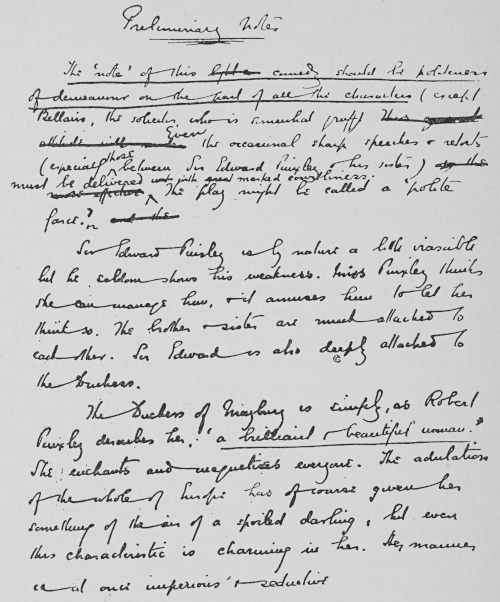 Preliminary Notes
The 'note' of this comedy should be politeness
of demeanour on the part of all the characters (except
Bellairs, the solicitor, who is somewhat gruff)
Even the occasional sharp speeches & retorts
(especially those between Sir Edward Purley & his sister)
must be delivered with marked courtliness.
The play might be called a 'polite
farce'.
Sir Edward Purley is by nature a little irascible
but he seldom shows his weakness. Miss Purley thinks
she can manage him, & it amuses him to let her
think so. The brother & sister are much attached to
each other. Sir Edward is also deeply attached to
the Duchess.
The Duchess of is simply, as Robert
Purley describes her, "a brilliant & beautiful woman."
She enchants and magnetises everyone. The adulation
of the whole of Europe has of course given her
something of the air of a spoiled darling, but even
this characteristic is charming in her. Her manner
is at once imperious & seductive